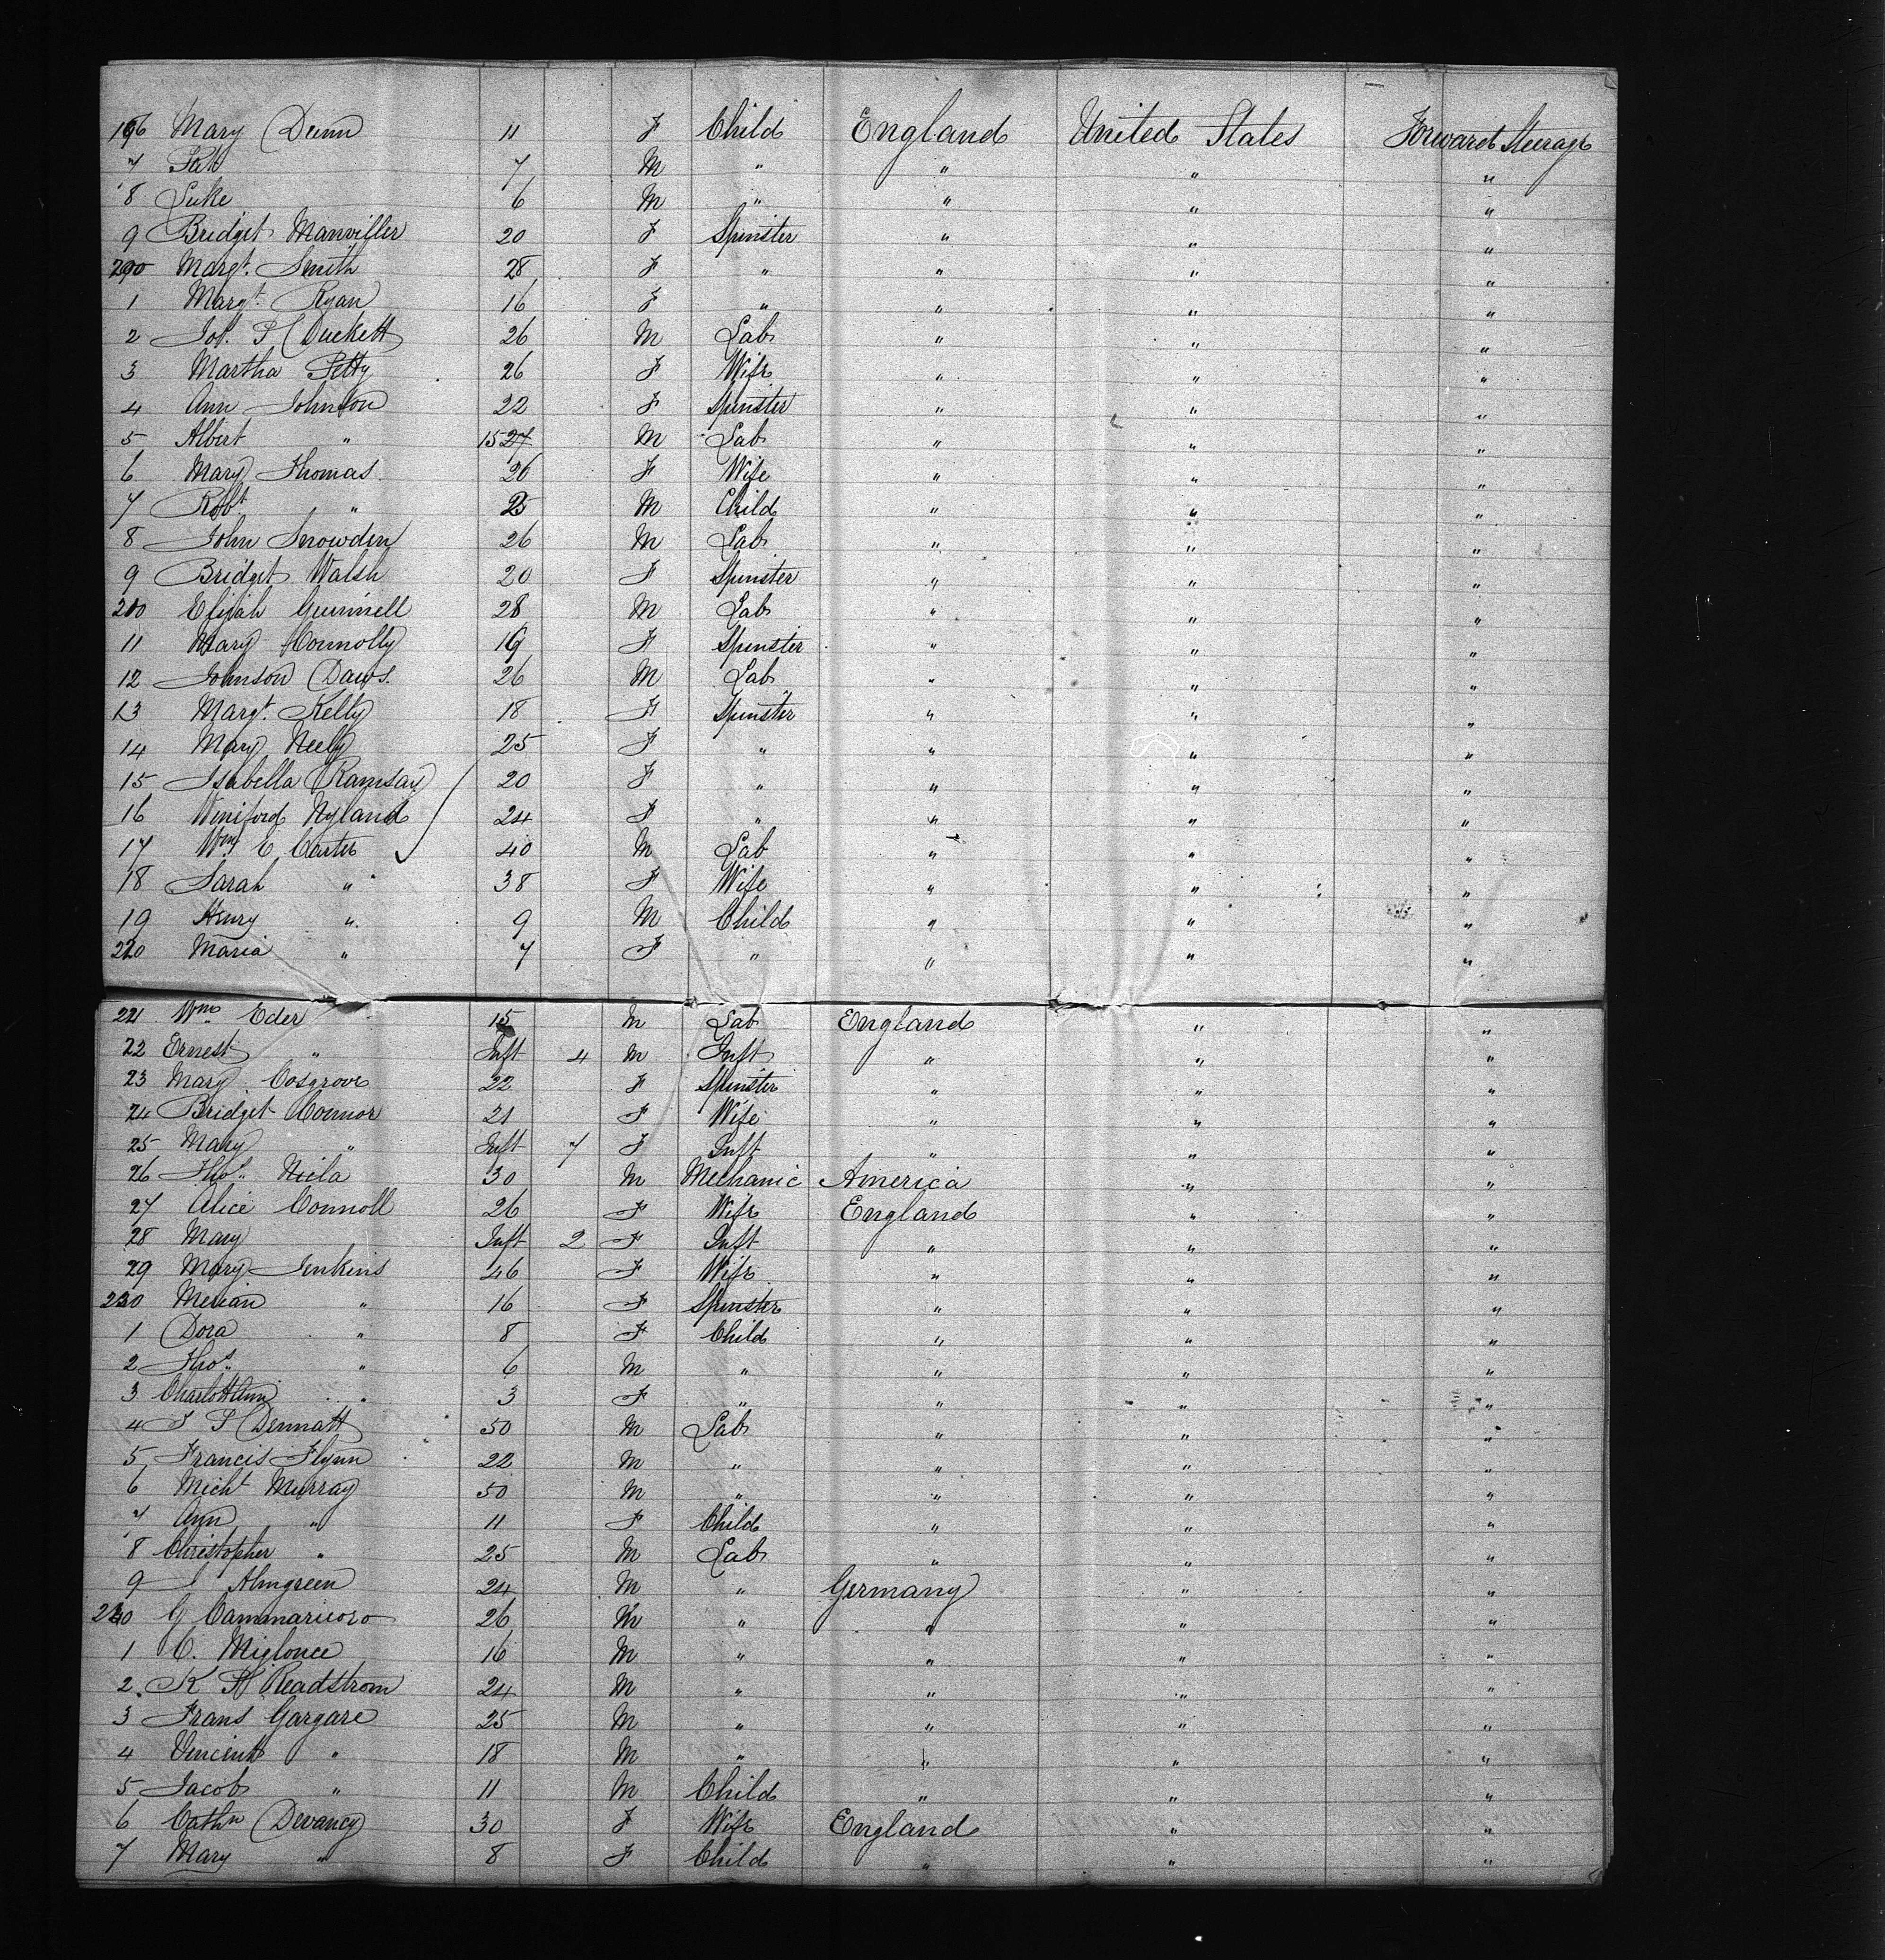 196 Mary Dunn 11 F Child England United States Forward Steerage
7 Pat 7 M " " " "
8 Luke 6 M " " " "
9 Bridget Manviller 20 F Spinster " " "
200 Margt. Smith 28 F " " " "
1 Margt. Ryan 16 F " " " "
2 Jos. P Duckett 26 M Lab " " "
3 Martha Petty 26 F Wife " " "
4 Ann Johnson 22 F Spinster " " "
5 Albert " 15 27 M Lab " " "
6 Mary Thomas 26 F Wife " " "
7 Robt. " M Child " " "
8 John Snowden 26 M Lab " " "
9 Bridget Walsh 20 F Spinster " " "
210 Elijah Gunnell 28 M Lab " " "
11 Mary Connolly 19 F Spinster " " "
12 Johnson Daws. 26 M Lab " " "
13 Margt. Kelly 18 F Spinster " " "
14 Mary Neely 25 F " " " "
15 Isabella Ramsay 20 F " " " "
16 Winiford Nyland 24 F " " " "
17 Wm E Carter 40 M Lab " " "
18 Sarah " 38 F Wife " " "
19 Henry " 9 M Child " " "
220 Maria " 7 F " " " "
221 Wm Eder 15 M Lab England " "
22 Ernest " Inft 4 M Inft " " "
23 Mary Cosgrove 22 F Spinster " " "
24 Bridget Connor 21 F Wife " " "
25 Mary " Inft 7 F Inft " " "
26 Thos. Neila 30 M Mechanic America " "
27 Alice Connoll 26 F Wife England " "
28 Mary Inft 2 F Inft " " "
29 Mary Jenkins 46 F Wife " " "
230 Merian " 16 F Spinster " " "
1 Dora " 8 F Child " " "
2 Thos. " 6 M " " " "
3 " 3 F " " " "
4 J P Dermatt 50 M Lab " " "
5 Francis Flynn 22 M " " " "
6 Michl Murray 50 M " " " "
7 Ann " 11 F Child " " "
8 Christopher " 25 M Lab " " "
9 J Almgreen 24 M " Germany " "
240 G Cammaricoro 26 M " " " "
1 C. Miglouce 16 M " " " "
2 K H Readstrom 24 M " " " "
3 Frans Gargare 25 M " " " "
4 Vincent " 18 M " " " "
5 Jacob " 11 M Child " " "
6 Cathn Devaney 30 F Wife England " "
7 Mary " 8 F Child " " "